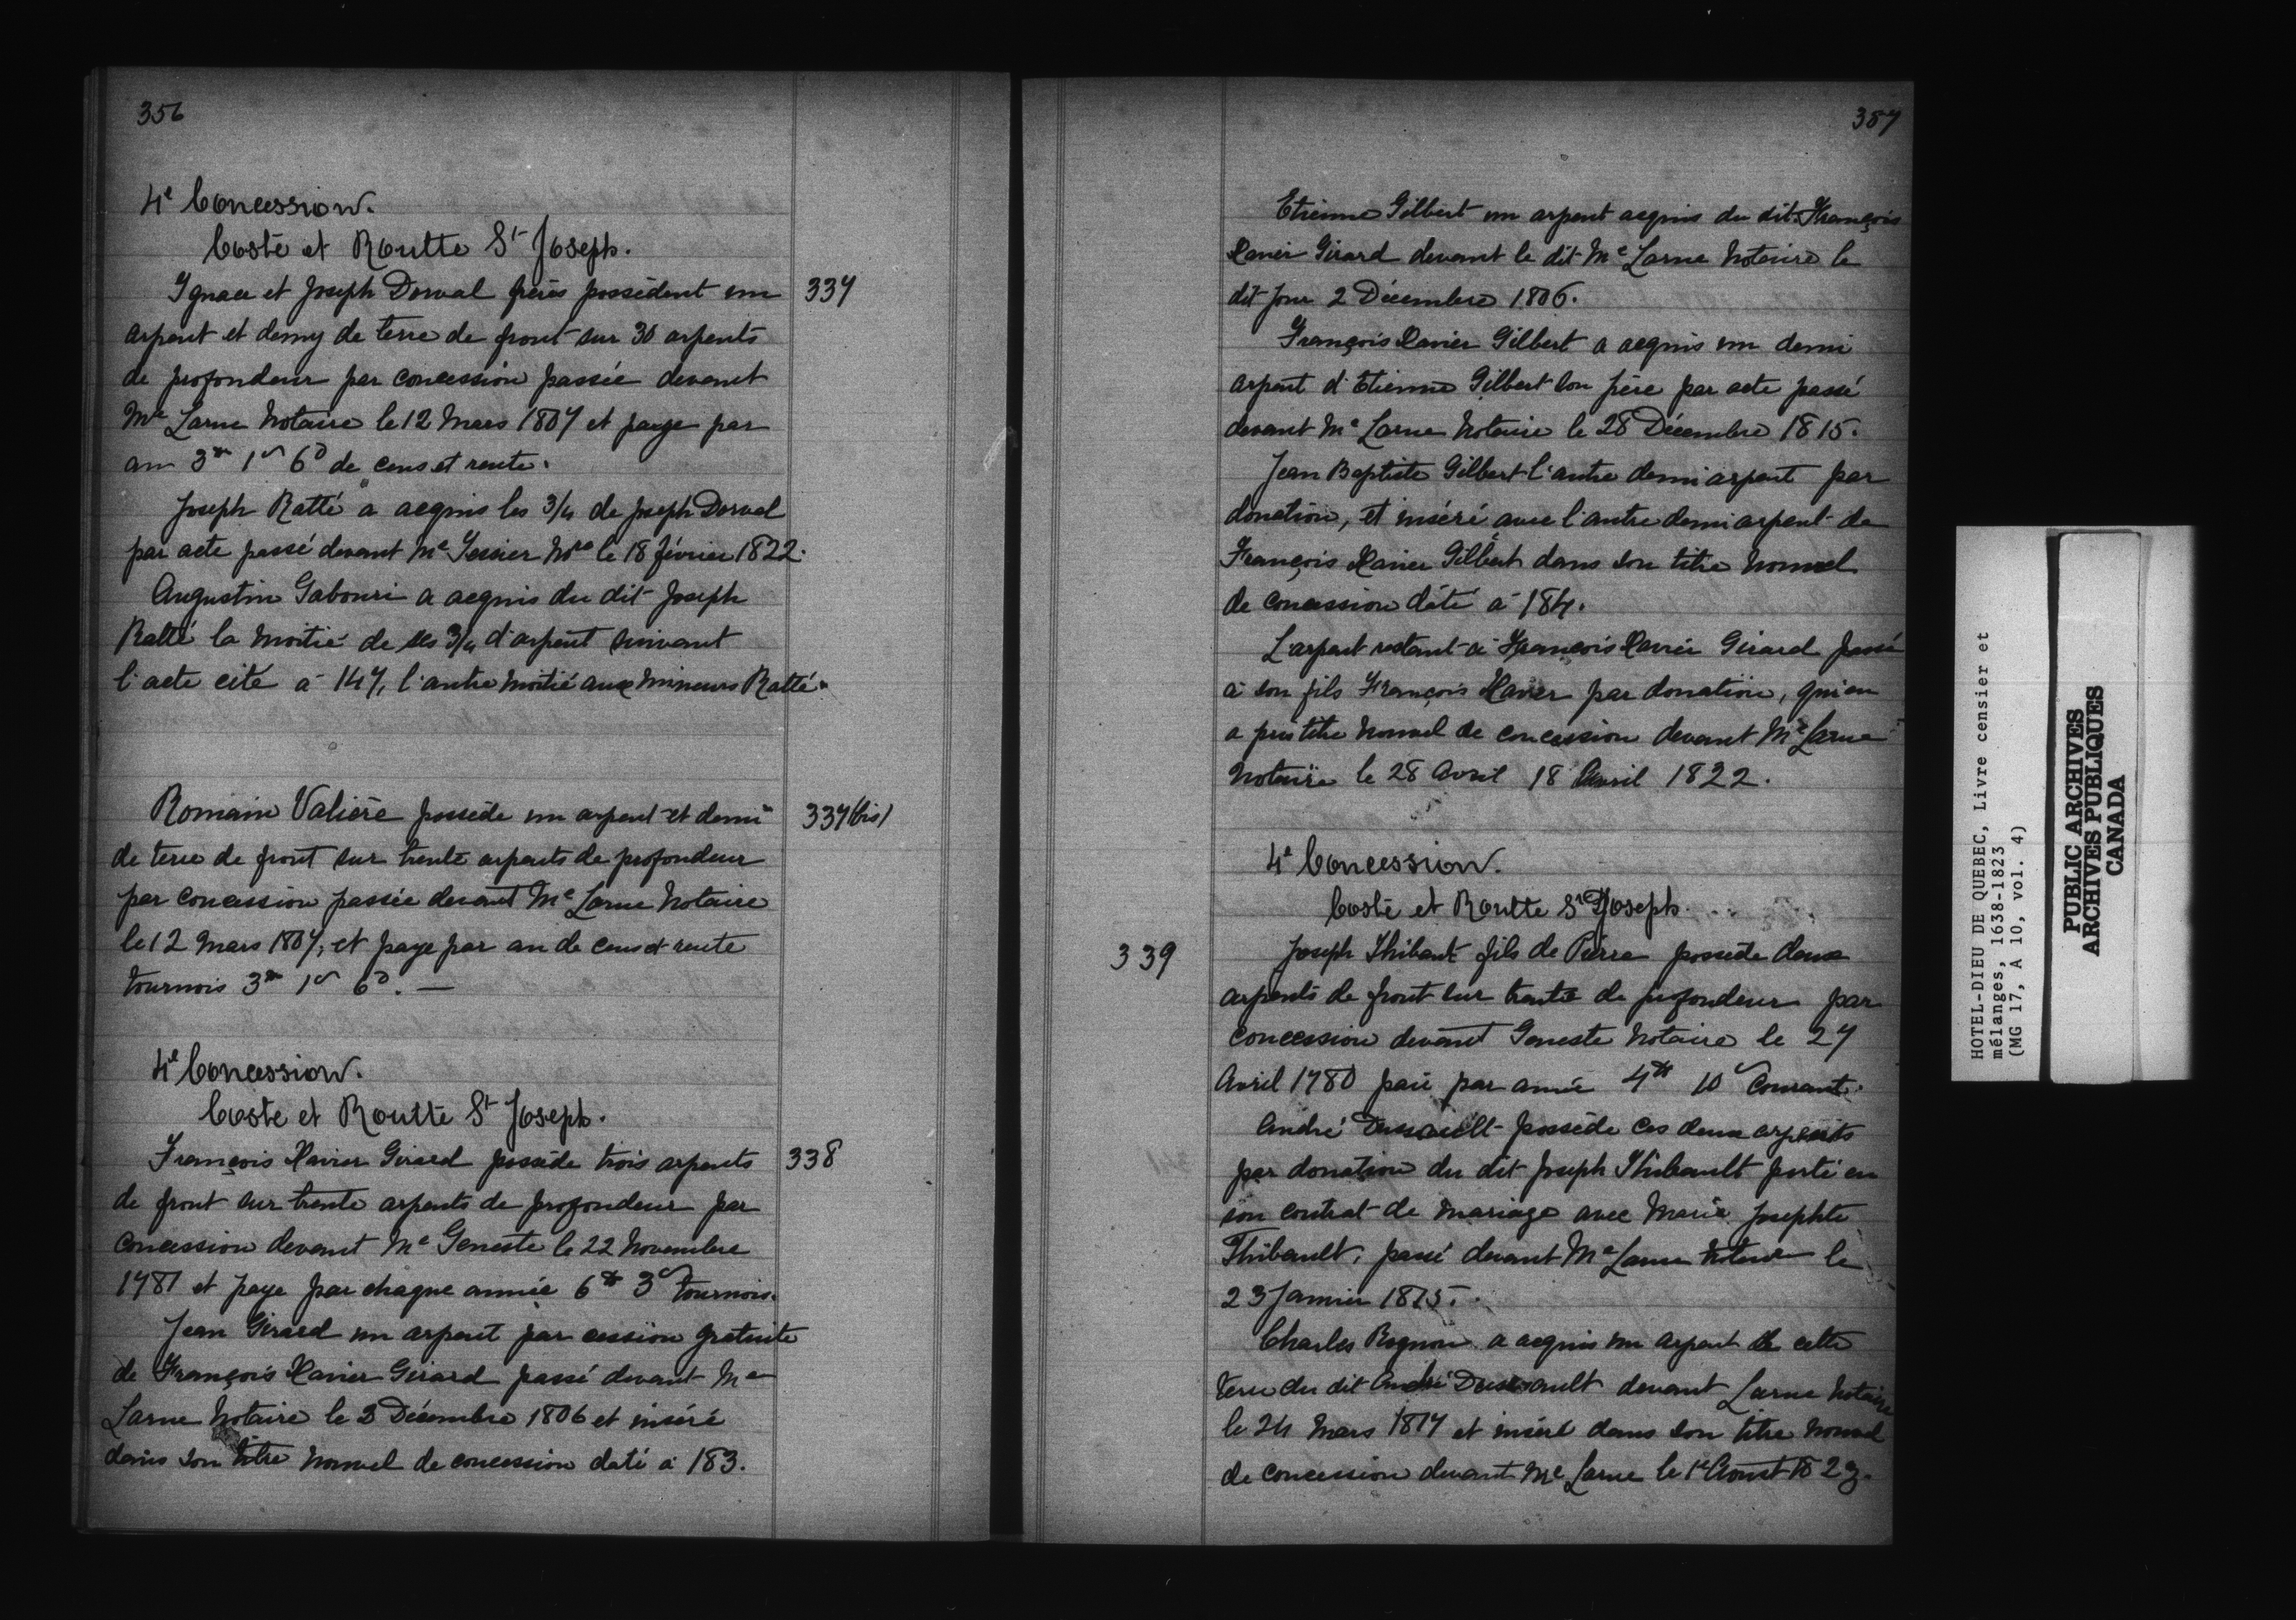 356
4e Concession.
Costé et Routte St Joseph.
Ignace et Joseph Dorval frères possèdent un 337
arpent et demy de terre de front sur 30 arpents
de profondeur par concession passée devant
Me Larue Notaire le 12 Mars 1807 et paye par
an 3tt 1s 6d de cens et rente.
Joseph Ratté a acquis les 3/4 de Joseph Dorval
par acte passé devant Me Tessier Nre le 18 février 1822.
Augustin Gabouri a acquis du dit Joseph
Ratté la moitié de ses 3/4 d'arpent suivant
l'acte cité à 147, l'autre moitié aux mineurs Ratté.
Romain Valière possède un arpent et demi 337(bis)
de terre de front sur trente arpents de profondeur
par concession passée devant Me Larue Notaire
le 12 Mars 1807, et paye par an de cens et rente
tournois 3tt 1s 6d. —
4e Concession.
Costé et Routte St Joseph.
François Xavier Girard possède trois arpents 338
de front sur trente arpents de profondeur par
concession devant Me Geneste le 22 Novembre
1781 et paye par chaque année 6tt 3s tournois.
Jean Girard un arpent par cession gratuite
de François Xavier Girard passé devant Me
Larue Notaire le 2 Décembre 1806 et inséré
dans son titre nouvel de concession daté à 183.
357
Etienne Gilbert un arpent acquis du dit François
Xavier Girard devant le dit Me Larue Notaire le
dit jour 2 Décembre 1806.
François Xavier Gilbert a acquis un demi
arpent d'Etienne Gilbert son père par acte passé
devant Me Larue Notaire le 28 Décembre 1815.
Jean Baptiste Gilbert l'autre demi arpent par
donation, et inséré avec l'autre demi arpent de
François Xavier Gilbert dans son titre nouvel
de concession daté à 184.
L'arpent restant à François Xavier Girard passé
à son fils François Xavier par donation, qui en
a pris titre nouvel de concession devant Me Larue
Notaire le 28 Avril 18 Avril 1822.
4e Concession.
Costé et Routte St Joseph.
339 Joseph Thibaut fils de Pierre possède deux
arpents de front sur trente de profondeur par
concession devant Geneste Notaire le 27
Avril 1780 paie par année 4tt 10s Courant.
André Dussault possède ces deux arpents
par donation du dit Joseph Thibault porté en
son contrat de mariage avec Marie Josephte
Thibault, passé devant Me Larue Notaire le
23 Janvier 1815.
Charles Rognon a acquis un arpent de cette
terre du dit André Dussault devant Larue Notaire
le 24 Mars 1817 et inséré dans son titre nouvel
de concession devant Me Larue le 1e Aoust 1823.
HOTEL-DIEU DE QUEBEC, Livre censier et
mélanges, 1638-1823
(MG 17, A 10, vol. 4)
PUBLIC ARCHIVES
ARCHIVES PUBLIQUES
CANADA